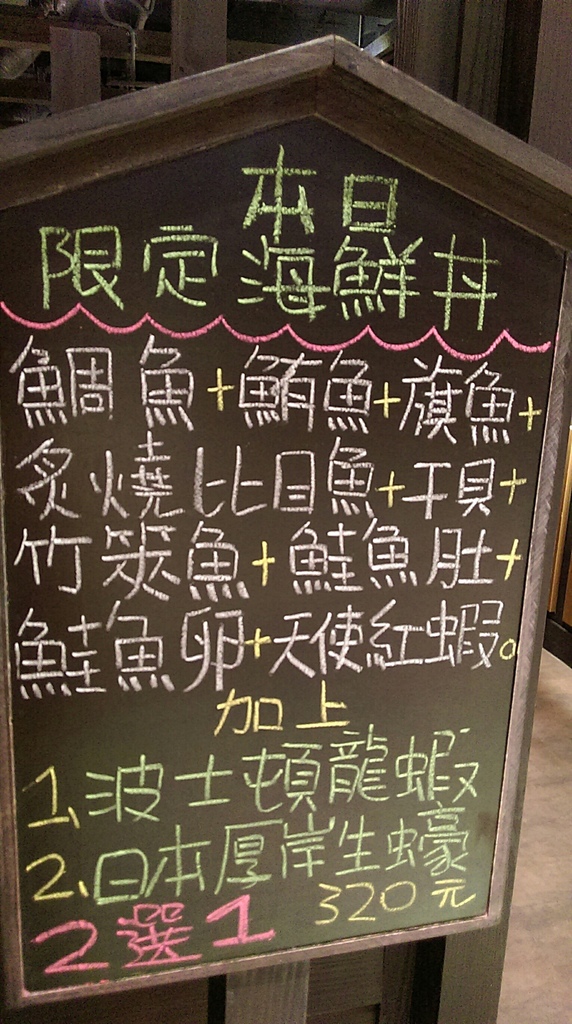 本日
限定海鮮丼
鯛魚+鮪魚+旗魚+
炙燒比目魚+干貝+
竹筴魚+鮭魚肚+
鮭魚卵+天使紅蝦。
加上
1、波士頓龍蝦
2、日本厚岸生蠔
320元
2選1